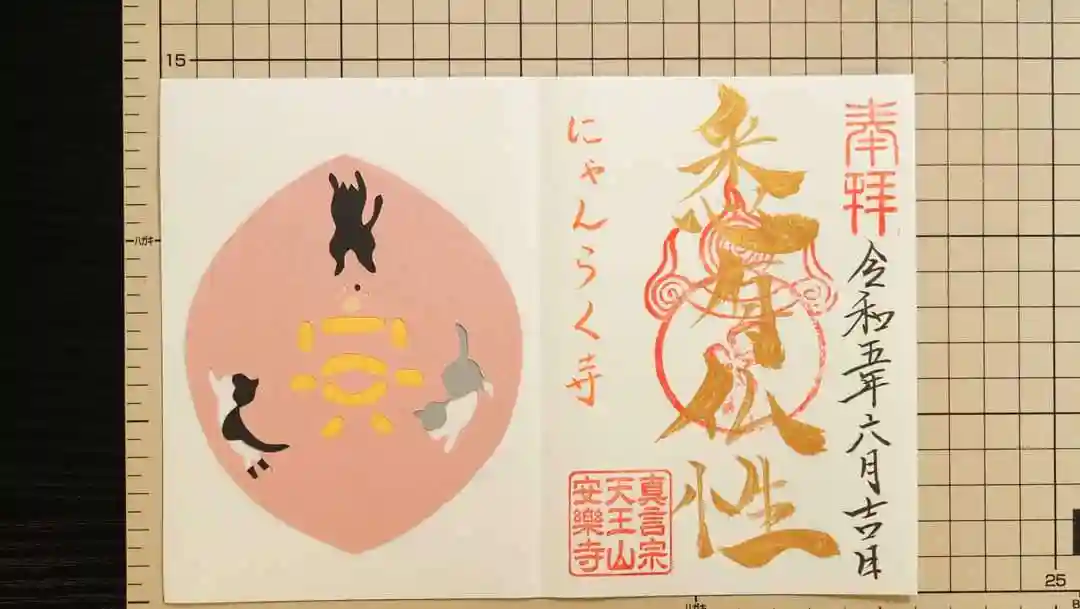 奉拝
令和五年六月吉日
悉有仏性
にゃんらく寺
真言宗
天王山
安樂寺
15
ハガキ
ハガキ
25